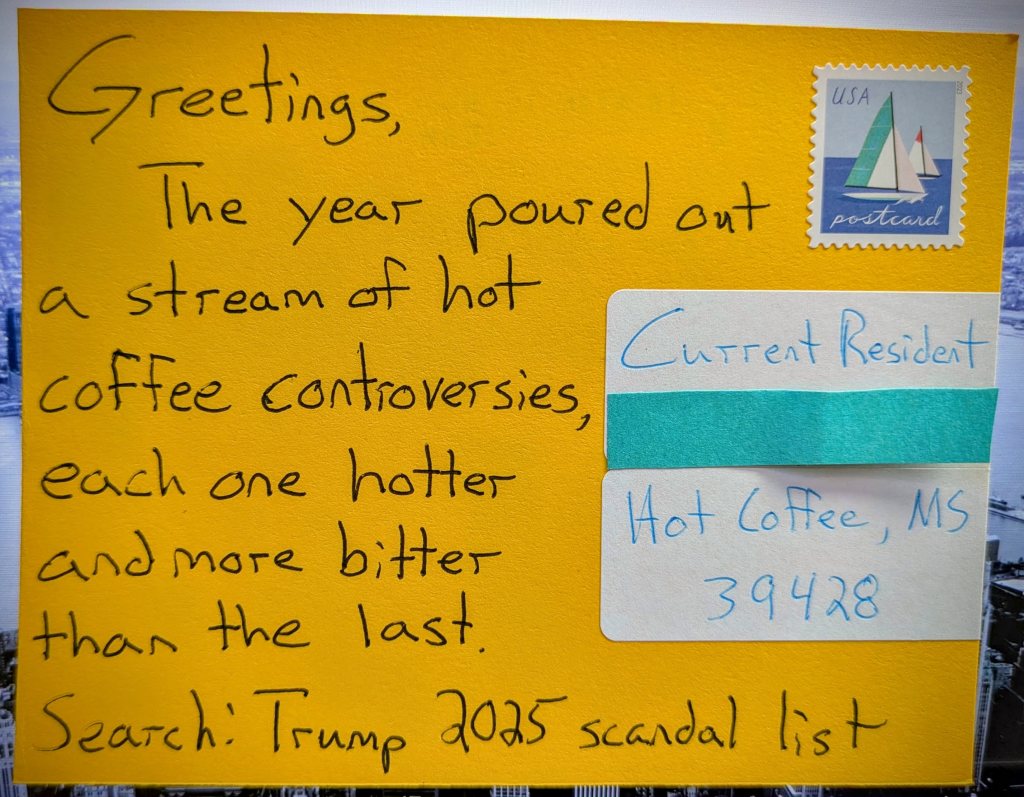 Greetings,
The year poured out
a stream of hot
coffee controversies,
each one hotter
and more bitter
than the last.
Search: Trump 2025 scandal list
USA
2023
postcard
Current Resident
Hot Coffee, MS
39428